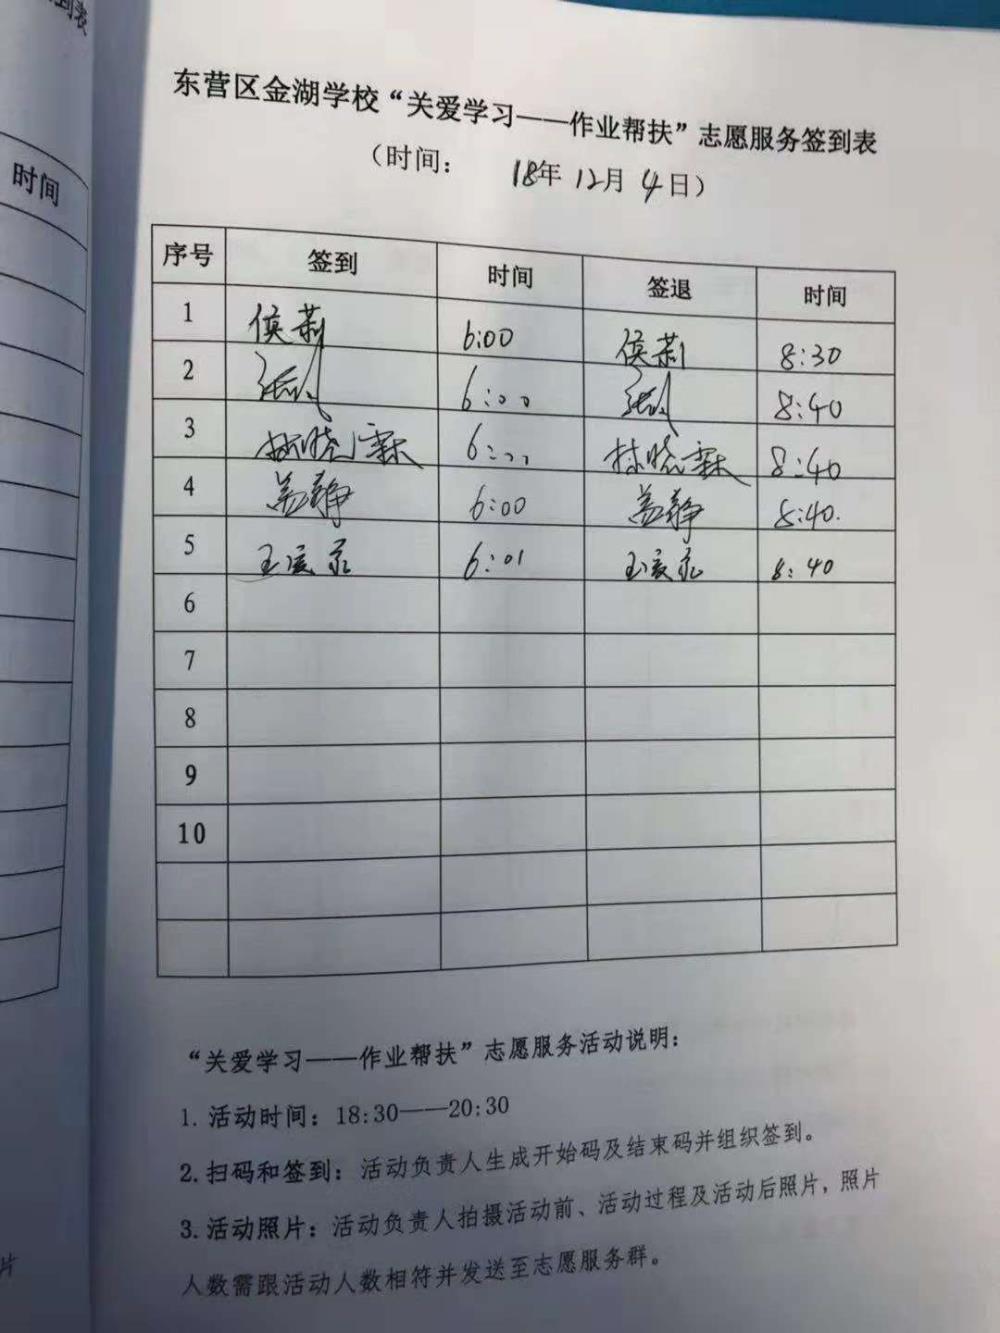 到表
时间
东营区金湖学校“关爱学习——作业帮扶”志愿服务签到表
（时间： 18年 12月 4日）
序号 签到 时间 签退 时间
1 侯莉 6:00 侯莉 8:30
2 6:00 8:40
3 林晓霖 6:00 林晓霖 8:40
4 盖静 6:00 盖静 8:40.
5 6:01 8:40
6
7
8
9
10
“关爱学习——作业帮扶”志愿服务活动说明：
1.活动时间：18:30——20:30
2.扫码和签到：活动负责人生成开始码及结束码并组织签到。
3.活动照片：活动负责人拍摄活动前、活动过程及活动后照片，照片
人数需跟活动人数相符并发送至志愿服务群。
片